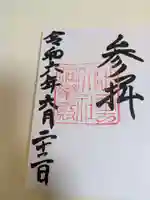 参拝
令和六年六月二十二日